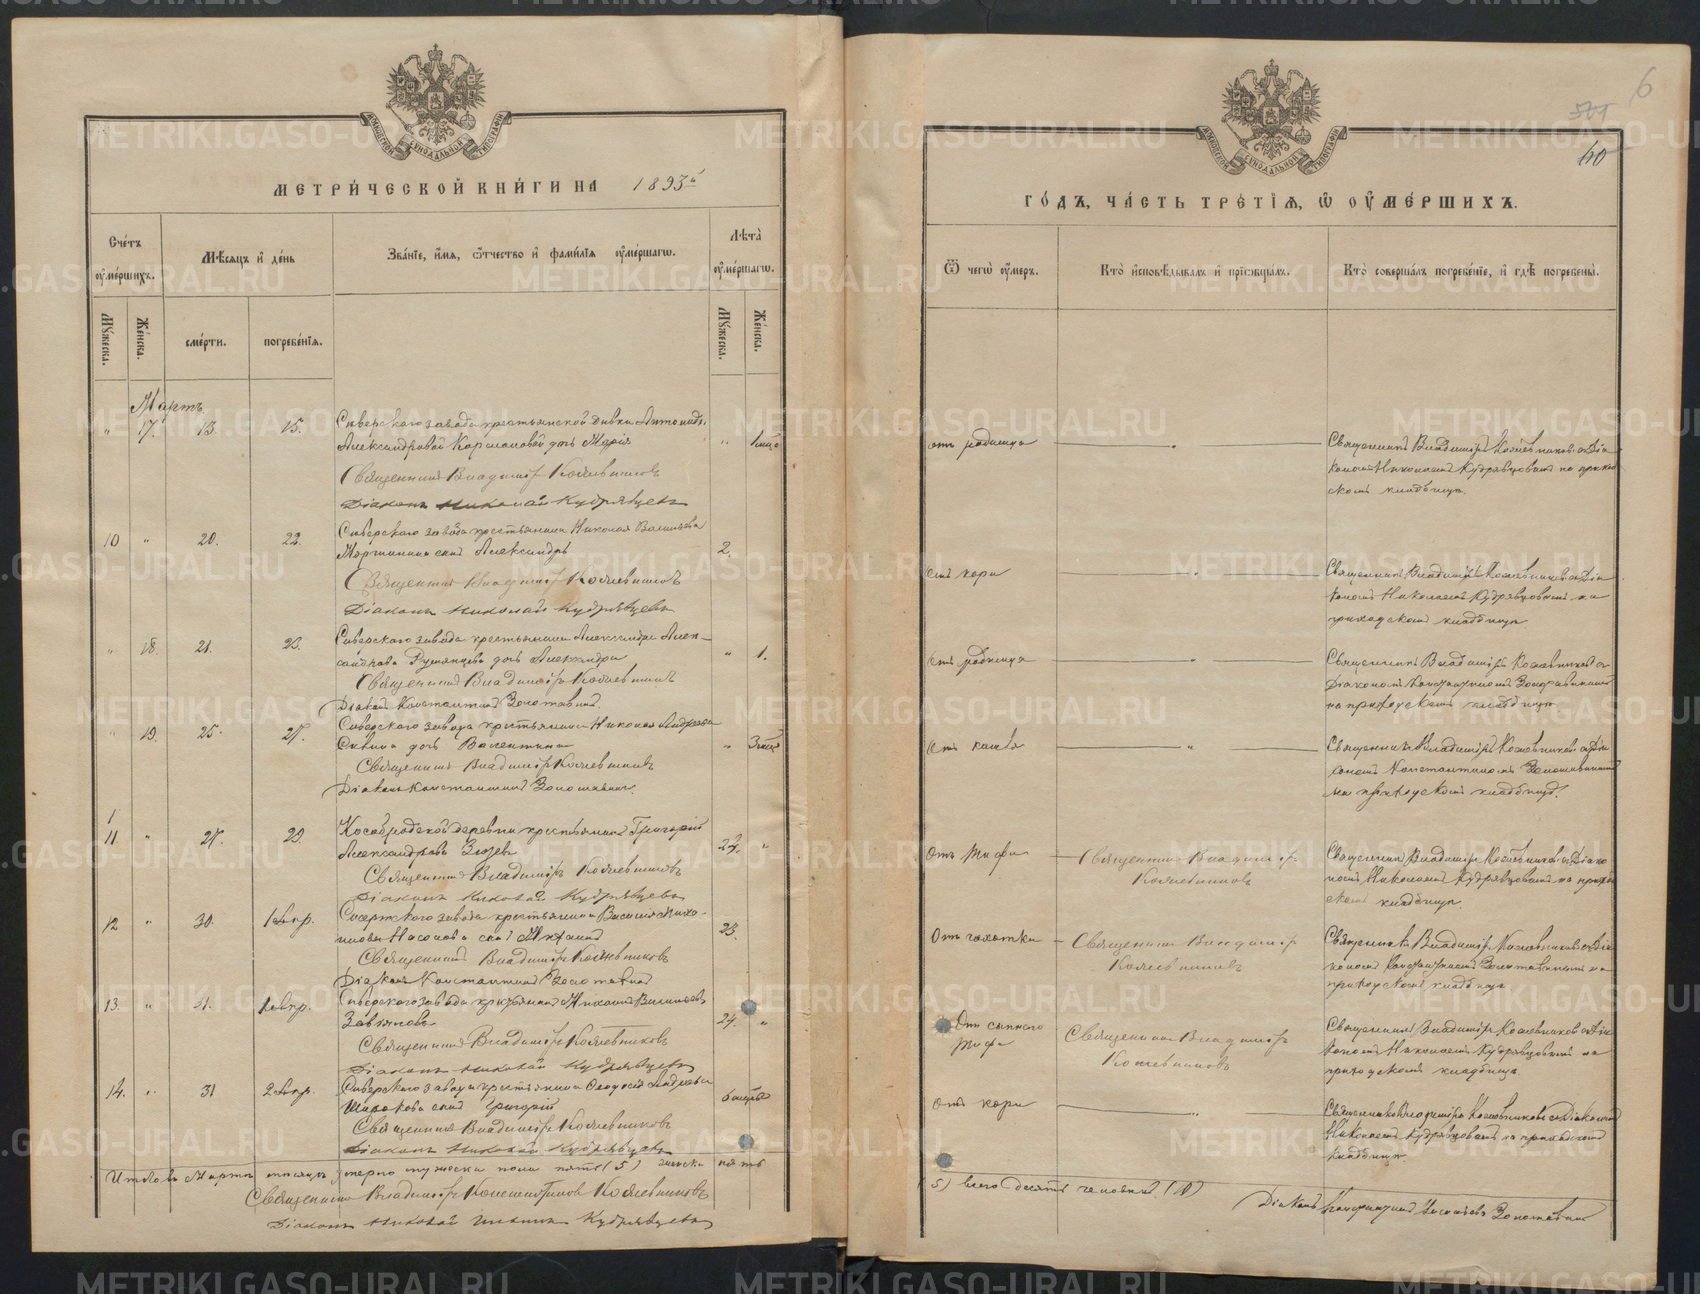 МЕТРИ́ЧЕСКОЙ КНИ́ГИ НА 1893й
Сче́тъ ᲂу҆ме́ршихъ.
Мѣ́сяцъ и҆ де́нь
Зва́нїе, и҆́мя, ѻ҆́тчество и҆ фами́лїя ᲂу҆ме́ршагѡ.
Лѣ́та ᲂу҆ме́ршагѡ.
Мꙋ́жеска.
Же́нска.
сме́рти.
погребе́нїя.
Мꙋ́жеска.
Же́нска.
Мартъ
" 17. 13. 15.
Сиверскаго завода крестьянской дѣвки
Александровой дочь Марія
Священникъ Владиміръ Кожевниковъ
Діаконъ Николай Кудрявцевъ
10 " 20. 22. 2.
Сиверскаго завода крестьянина Николая Васильева
сынъ Александръ
Священникъ Владиміръ Кожевниковъ
Діаконъ Николай Кудрявцевъ
" 18. 21. 23. " 1.
Сиверскаго завода крестьянина Александра Алек-
сандрова Румянцева дочь Александра
Священникъ Владиміръ Кожевниковъ
Діаконъ Константинъ Золотавинъ.
" 19. 25. 27. "
Сиверскаго завода крестьянина Николая Андреева
дочь Валентина
Священникъ Владиміръ Кожевниковъ
Діаконъ Константинъ Золотавинъ.
11 " 27. 29. "
Кособродской деревни крестьянинъ Григорій
Александровъ Зюзевъ
Священникъ Владиміръ Кожевниковъ
Діаконъ Николай Кудрявцевъ
12 " 30. 1 Апр. 23.
завода крестьянина Василія Михай-
лова Насонова сынъ
Священникъ Владиміръ Кожевниковъ
Діаконъ Константинъ Золотавинъ
13. " 31. 1 Апр. 24. "
Сиверскаго завода крестьянинъ Михаилъ Васильевъ
Завьяловъ
Священникъ Владиміръ Кожевниковъ
Діаконъ Николай Кудрявцевъ
14. " 31 2 Апр.
Сиверскаго завода крестьянина Андреева
Широкова сынъ Григорій
Священникъ Владиміръ Кожевниковъ
Діаконъ Николай Кудрявцевъ
Итого въ Мартѣ мѣсяцѣ умерло мужеска пола пять (5) женска пять
Священникъ Владиміръ Кожевниковъ
Діаконъ Николай Кудрявцевъ
6
40
ГО́ДЪ, ЧА́СТЬ ТРЕ́ТЇѦ, Ѡ҆ ОУ҆МЕ́РШИХЪ.
Ѿ чегѡ̀ ᲂу҆́меръ.
Кто̀ и҆сповѣ́дывалъ и҆ прїѡбща́лъ.
Кто̀ соверша́лъ погребе́нїе, и҆ гдѣ̀ погребены̀.
отъ родимца "
Священникъ Владиміръ Кожевниковъ съ Діа
кономъ Николаемъ Кудрявцовымъ на приход
скомъ кладбищѣ.
отъ кори "
Священникъ Владиміръ Кожевниковъ съ Діа
кономъ Николаемъ Кудрявцовымъ на
приходскомъ кладбищѣ
отъ родимца "
Священникъ Владиміръ Кожевниковъ съ
Діакономъ Константиномъ Золотавинымъ
на приходскомъ кладбищѣ
отъ кашля "
Священникъ Владиміръ Кожевниковъ съ Діа
кономъ Константиномъ Золотавинымъ
на приходскомъ кладбищѣ.
Отъ тифа
Священникъ Владиміръ
Кожевниковъ
Священникъ Владиміръ Кожевниковъ съ Діако
номъ Николаемъ Кудрявцовымъ на приход
скомъ кладбищѣ.
Отъ чахотки
Священникъ Владиміръ
Кожевниковъ
Священникъ Владиміръ Кожевниковъ съ Діа
кономъ Константиномъ Золотавинымъ на
приходскомъ кладбищѣ
Отъ сыпного
тифа
Священникъ Владиміръ
Кожевниковъ
Священникъ Владиміръ Кожевниковъ съ Діа
кономъ Николаемъ Кудрявцовымъ на
приходскомъ кладбищѣ
отъ кори "
Священникъ Владиміръ Кожевниковъ съ Діакономъ
Николаемъ Кудрявцовымъ на приходскомъ
кладбищѣ.
(5) всего десять человѣкъ. (10)
Діаконъ Константинъ Золотавинъ
METRIKI.GASO-URAL.RU